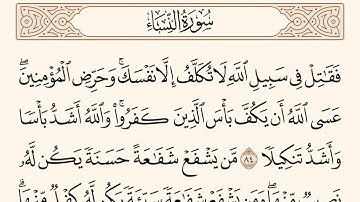 سُورَةُ النِّسَاءِ
فَقَٰتِلۡ فِي سَبِيلِ ٱللَّهِ لَا تُكَلَّفُ إِلَّا نَفۡسَكَۚ وَحَرِّضِ ٱلۡمُؤۡمِنِينَۖ
عَسَى ٱللَّهُ أَن يَكُفَّ بَأۡسَ ٱلَّذِينَ كَفَرُواْۚ وَٱللَّهُ أَشَدُّ بَأۡسٗا
وَأَشَدُّ تَنكِيلٗا ٨٤ مَّن يَشۡفَعۡ شَفَٰعَةً حَسَنَةٗ يَكُن لَّهُۥ
نَصِيبٞ مِّنۡهَاۖ وَمَن يَشۡفَعۡ شَفَٰعَةٗ سَيِّئَةٗ يَكُن لَّهُۥ كِفۡلٞ مِّنۡهَاۗ